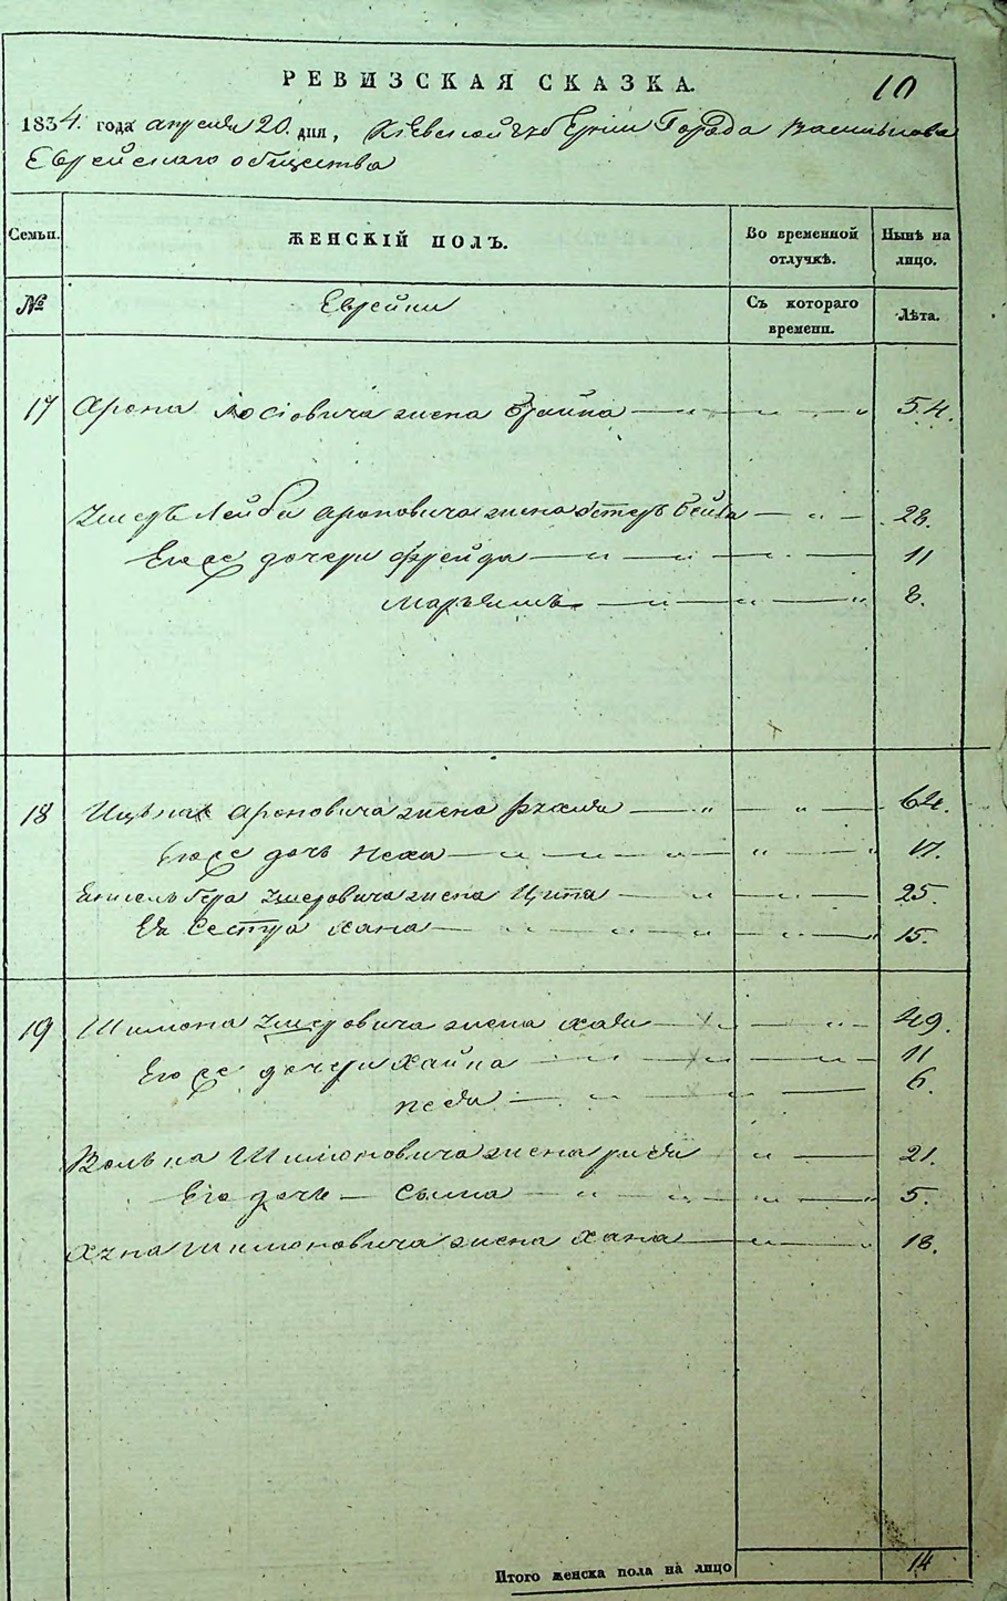 РЕВИЗСКАЯ СКАЗКА. 10
1834. года апреля 20. дня, Кіевской губерніи Города Василькова
Еврейскаго общества
Семьи. ЖЕНСКІЙ ПОЛЪ. Во временной отлучкѣ. Нынѣ на лицо.
№ Еврейки Съ котораго времени. Лѣта.
17 Арона Іосіовича жена Брайна 54.
Лейба Ароновича жена Эстеръ Бейла 28.
Его же дочери Фрейда 11
Марьямъ 8.
18 Ицька Ароновича жена Рхаля 64.
Его же дочь Неха 17.
Жена Ципа 25.
Ея Сестра Хана 15.
19 Шимона Хмеровича жена Хая 49.
Его же дочери Хайка 11
Песя 6.
Волька Шимоновича жена Рися 21.
Его дочь Сима 5.
Шимоновича жена Хана 18.
Итого женска пола на лицо 14